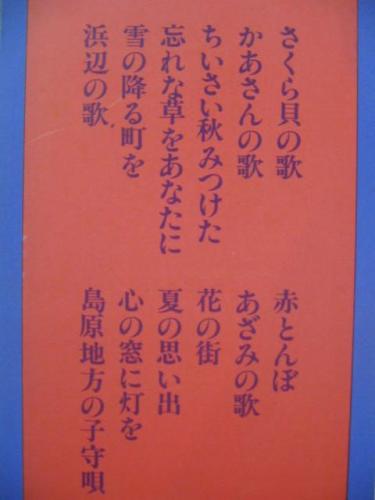 さくら貝の歌
かあさんの歌
ちいさい秋みつけた
忘れな草をあなたに
雪の降る町を
浜辺の歌
赤とんぼ
あざみの歌
花の街
夏の思い出
心の窓に灯を
島原地方の子守唄